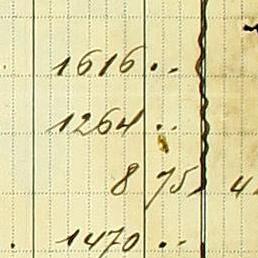 1616 . .
1264 . .
8 75 4
1470 . .